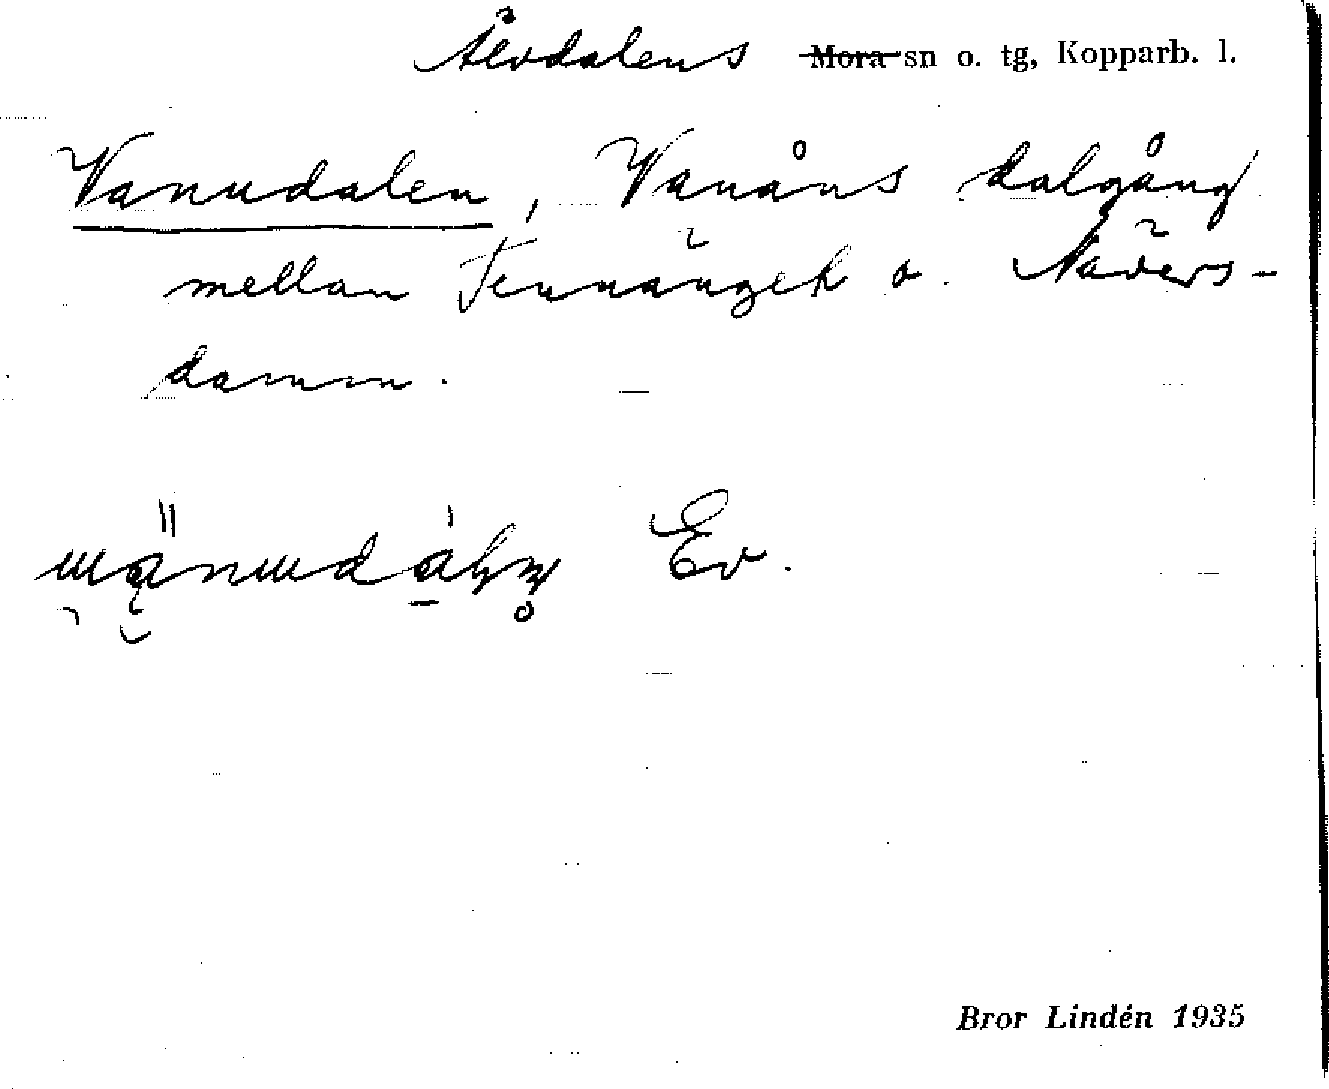 Älvdalens ~~Mora~~ sn o. tg, Kopparb. l.
Vanudalen, Vanåns dalgång
mellan Tennänget o. Nävers-
damm.
Ev.
Bror Lindén 1935